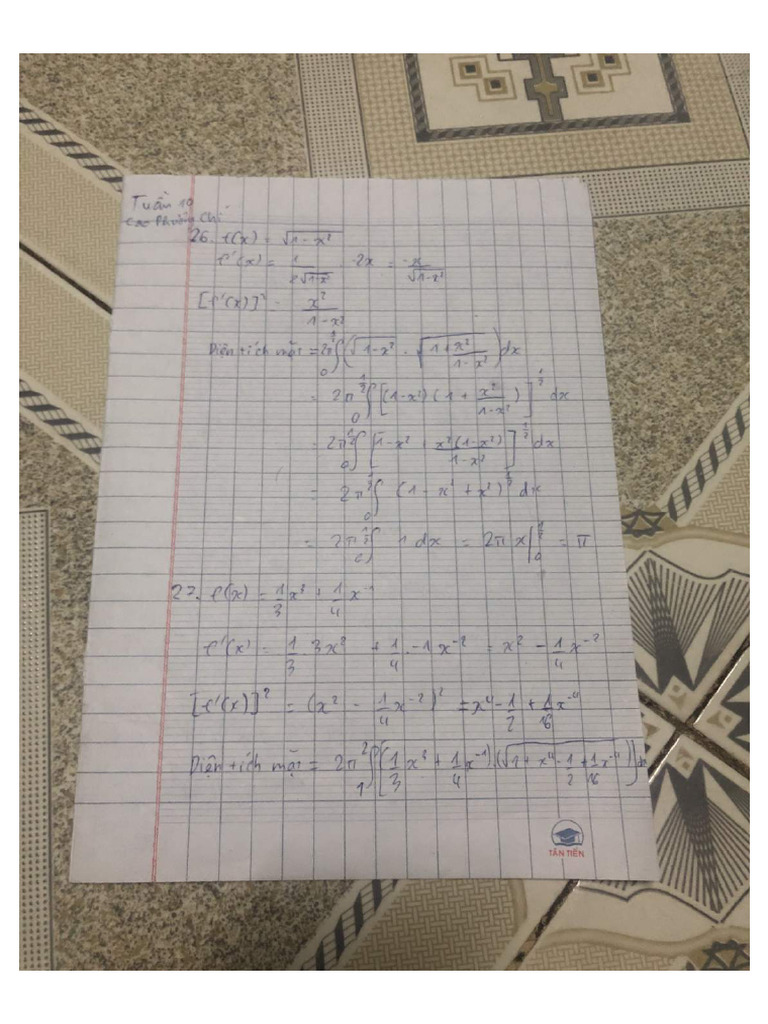 Tuần 10
Cao Phương Chi
26. f(x) = √(1-x²)
f'(x) = 1/(2√(1-x²)) · -2x = -x/√(1-x²)
[f'(x)]² = x²/(1-x²)
Diện tích mặt = 2π ∫₀^(1/2) (√(1-x²) · √(1+x²/(1-x²))) dx
= 2π ∫₀^(1/2) [(1-x²)(1 + x²/(1-x²))]^(1/2) dx
= 2π ∫₀^(1/2) [1-x² + x²(1-x²)/(1-x²)]^(1/2) dx
= 2π ∫₀^(1/2) (1-x²+x²)^(1/2) dx
= 2π ∫₀^(1/2) 1 dx = 2π x|₀^(1/2) = π
27. f(x) = 1/3 x³ + 1/4 x⁻¹
f'(x) = 1/3 · 3x² + 1/4 · -1x⁻² = x² - 1/4 x⁻²
[f'(x)]² = (x² - 1/4 x⁻²)² = x⁴ - 1/2 + 1/16 x⁻⁴
Diện tích mặt = 2π ∫₁² [(1/3 x³ + 1/4 x⁻¹) · (√(1 + x⁴ - 1/2 + 1/16 x⁻⁴))] dx
TÂN TIẾN